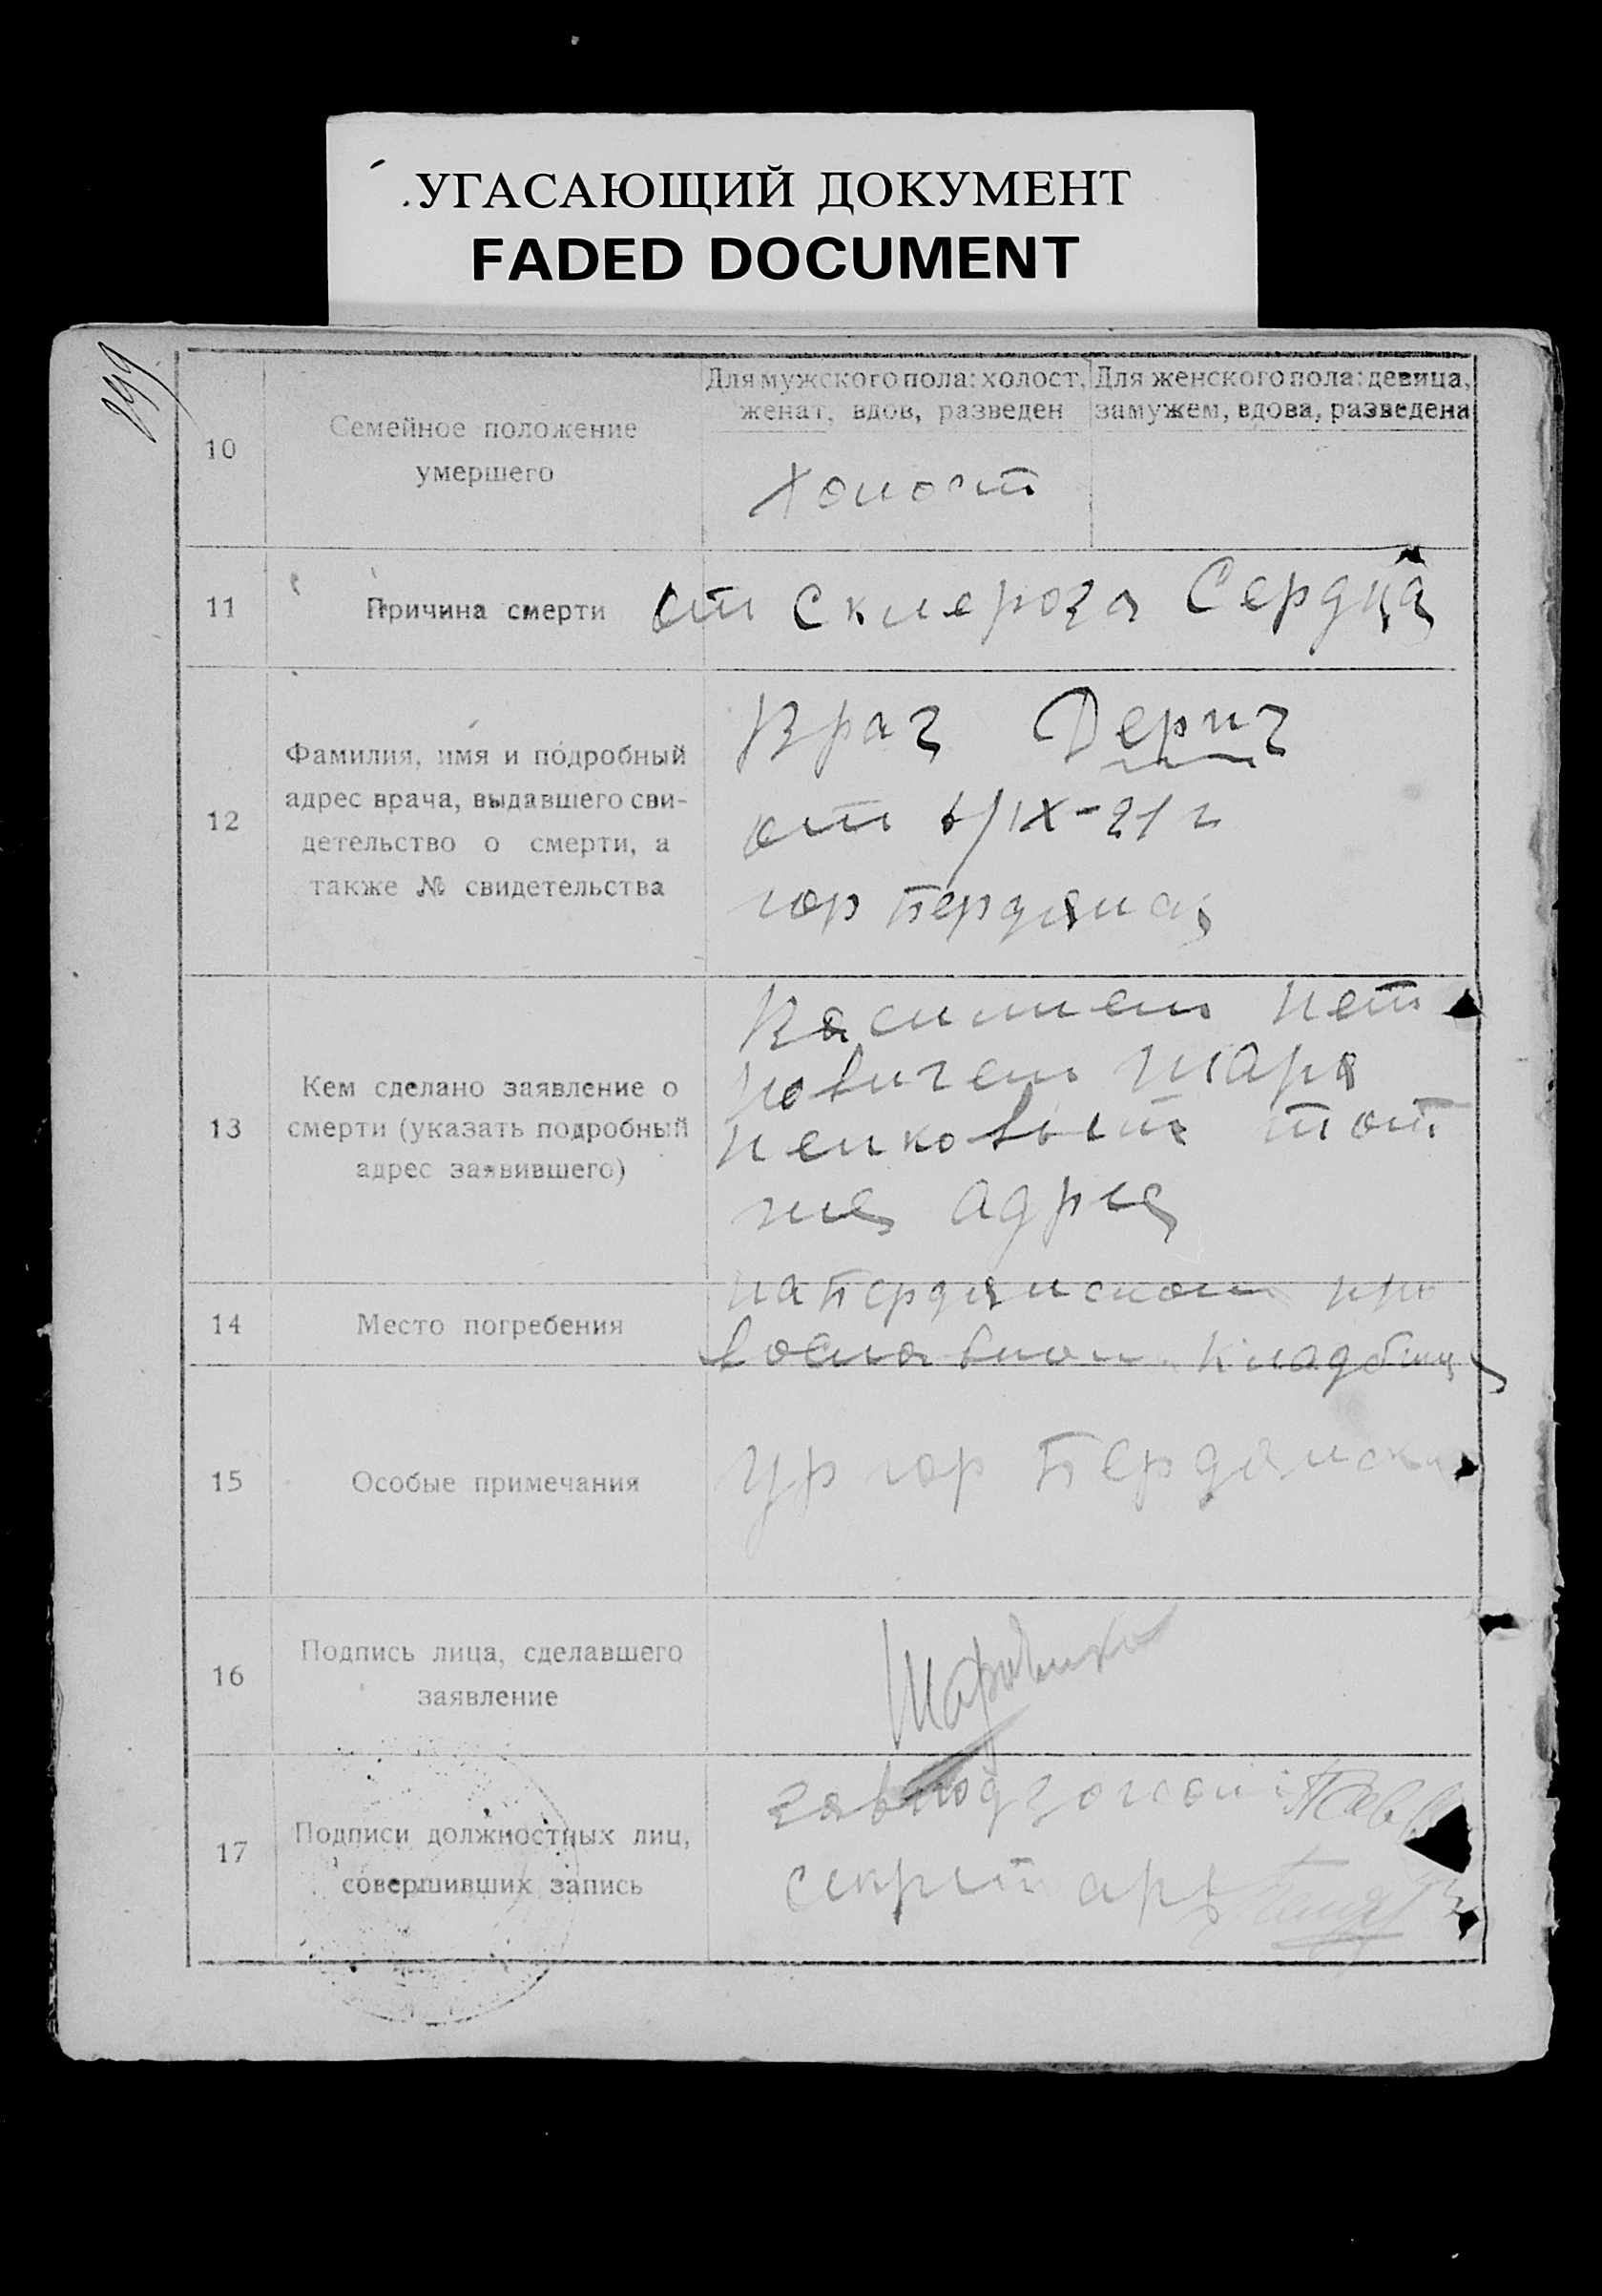 УГАСАЮЩИЙ ДОКУМЕНТ
FADED DOCUMENT
299
10
Семейное положение
умершего
Для мужского пола: холост,
женат, вдов, разведен
Для женского пола: девица,
замужем, вдова, разведена
Холост
11
Причина смерти
от склероза Сердца
12
Фамилия, имя и подробный
адрес врача, выдавшего сви-
детельство о смерти, а
также № свидетельства
Врач Дерич
от 6/IX-21 г
гор Бердянск
13
Кем сделано заявление о
смерти (указать подробный
адрес заявившего)
Василием Пет
ровичем
тот
же адрес
14
Место погребения
на Бердянском пра
вославном кладбищ
15
Особые примечания
Ур гор Бердянск
16
Подпись лица, сделавшего
заявление
17
Подписи должностных лиц,
совершивших запись
завподзагсом
секретарь